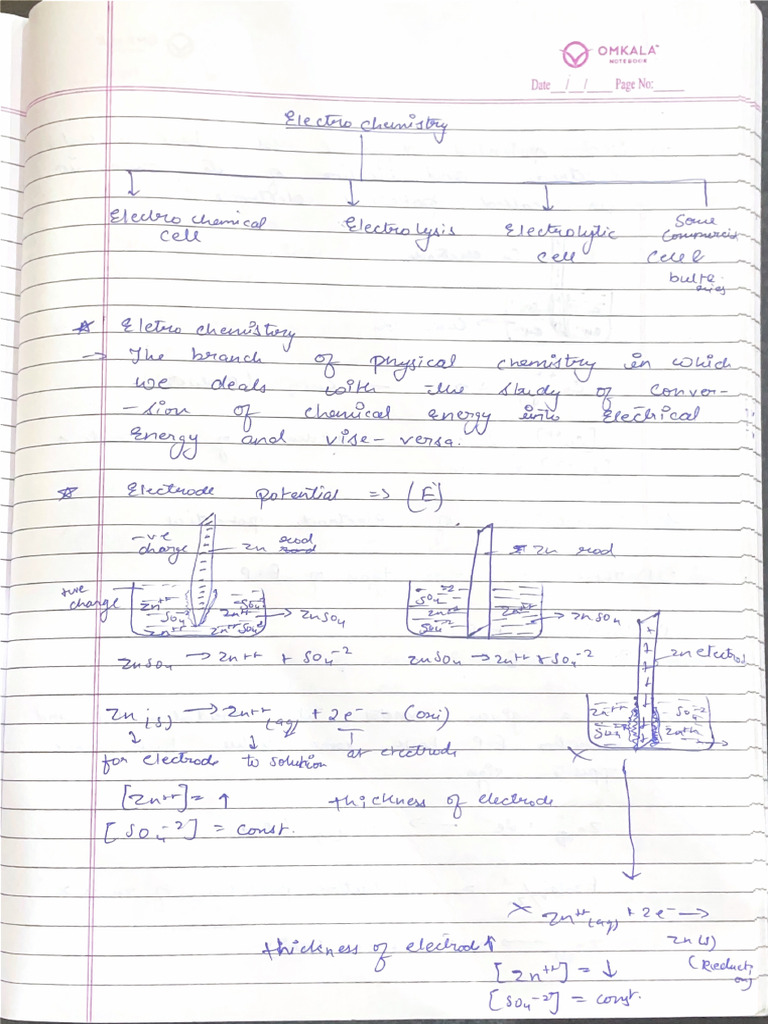 OMKALA
NOTEBOOK
Date__/__/____ Page No:______
Electro chemistry
Electro chemical cell
Electrolysis
Electrolytic cell
Some commercial cell & batteries
* Eletro chemistory
→ The branch of physical chemistry in which
we deals with the study of conver-
-sion of chemical energy into Electrical
Energy and vise-versa.
* Electrode potential => (E)
-ve charge
Zn rod
+ve charge
Zn++ SO4-2 Zn++
SO4-2 Zn++ Zn++ SO4-2
ZnSO4
Zn rod
SO4-2 Zn++ SO4-2
Zn++
ZnSO4
Zn electrod
ZnSO4 → Zn++ + SO4-2
ZnSO4 → Zn++ + SO4-2
Zn++ SO4-2
SO4-2 Zn++
Zn(s) → Zn++(aq) + 2e- - (oxi)
for electrode to solution at electrode
[Zn++] = ↑
thickness of electrode
[SO4-2] = const.
× Zn++(aq) + 2e- →
Zn(s)
(Reduction)
thickness of electrod↑
[Zn++] = ↓
[SO4-2] = const.